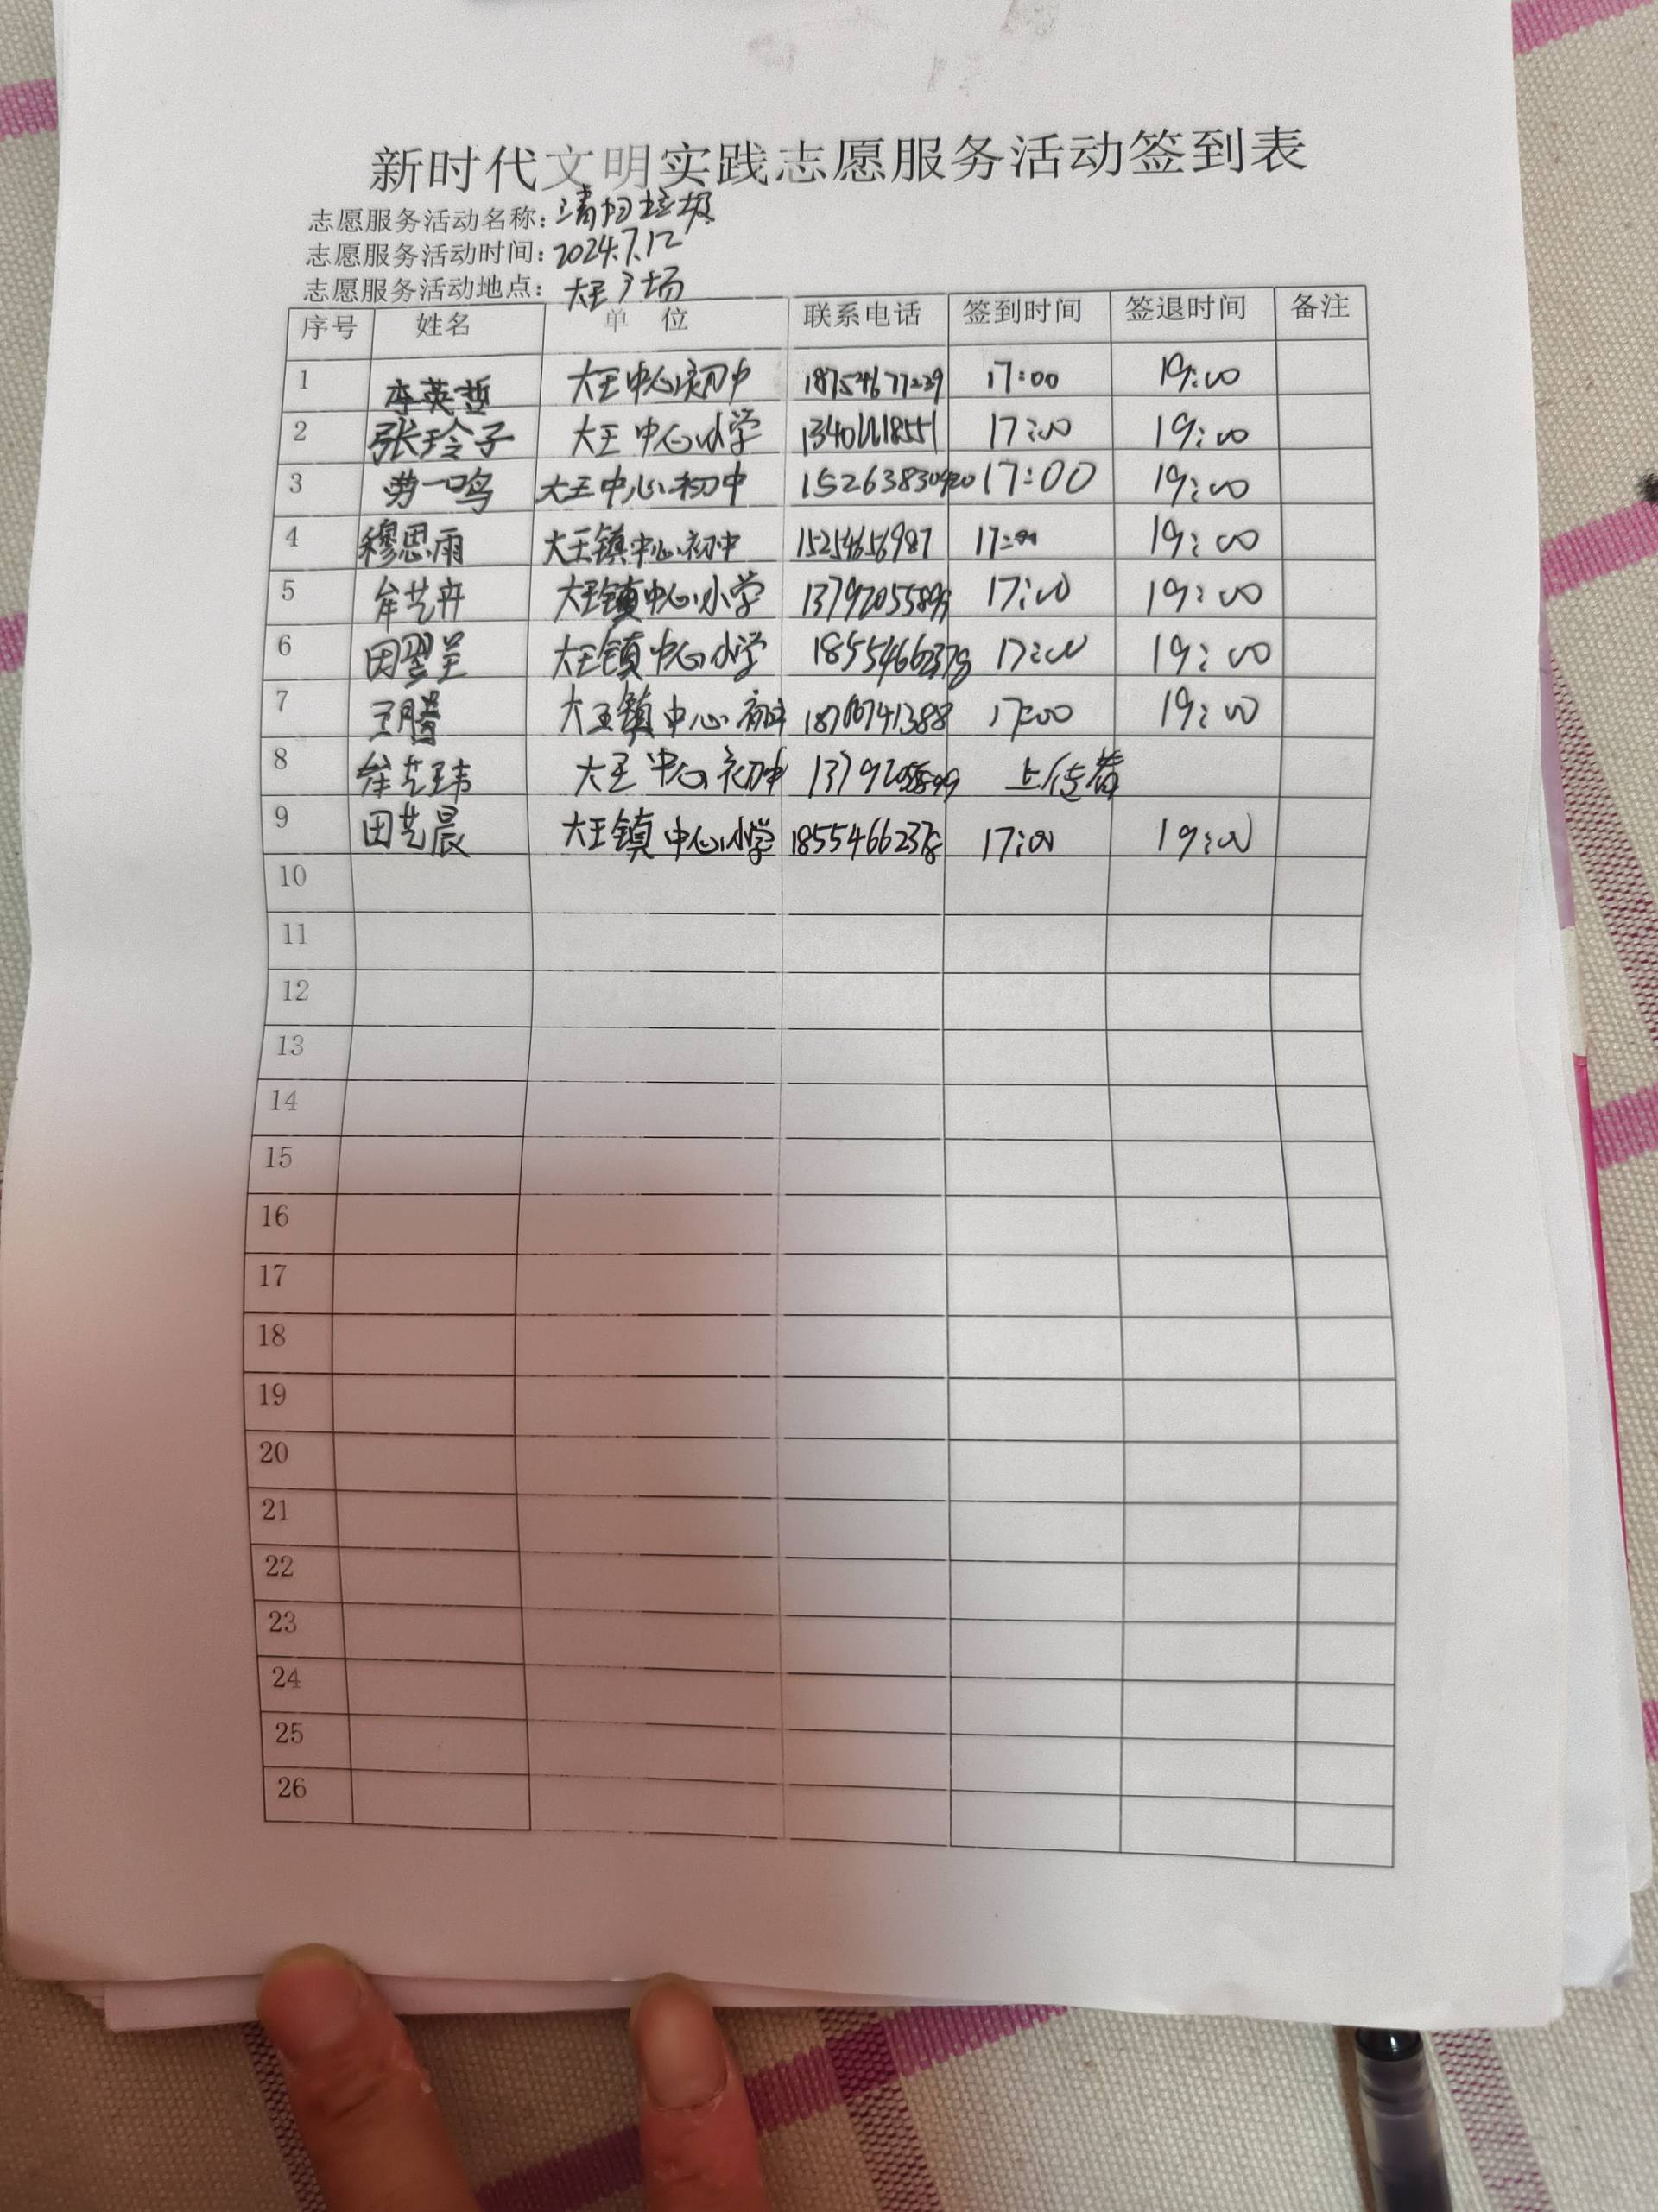 新时代文明实践志愿服务活动签到表
志愿服务活动名称：清扫垃圾
志愿服务活动时间：2024.7.12
志愿服务活动地点：大王广场
序号 姓名 单 位 联系电话 签到时间 签退时间 备注
1 李英哲 大王中心初中 18754677239 17:00 19:00
2 张玲子 大王中心小学 17:00 19:00
3 劳一鸣 大王中心初中 15263830920 17:00 19:00
4 穆思雨 大王镇中心初中 15254656987 17:00 19:00
5 牟艺卉 大王镇中心小学 13792055899 17:00 19:00
6 田翌呈 大王镇中心小学 18554662378 17:00 19:00
7 王腾 大王镇中心初中 18706741388 17:00 19:00
8 牟艺玮 大王中心初中 13792055899 上传者
9 田艺晨 大王镇中心小学 18554662378 17:00 19:00
10
11
12
13
14
15
16
17
18
19
20
21
22
23
24
25
26